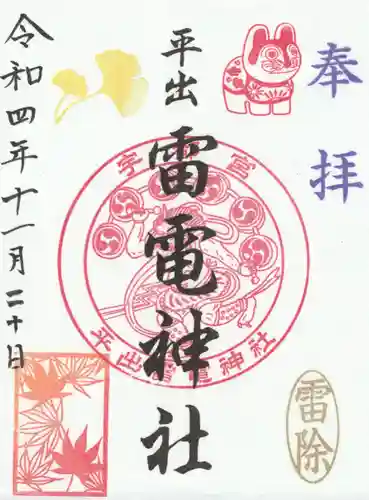 奉拝
平出
雷電神社
令和四年十一月二十日
宇 宮
平出雷電神社
雷除